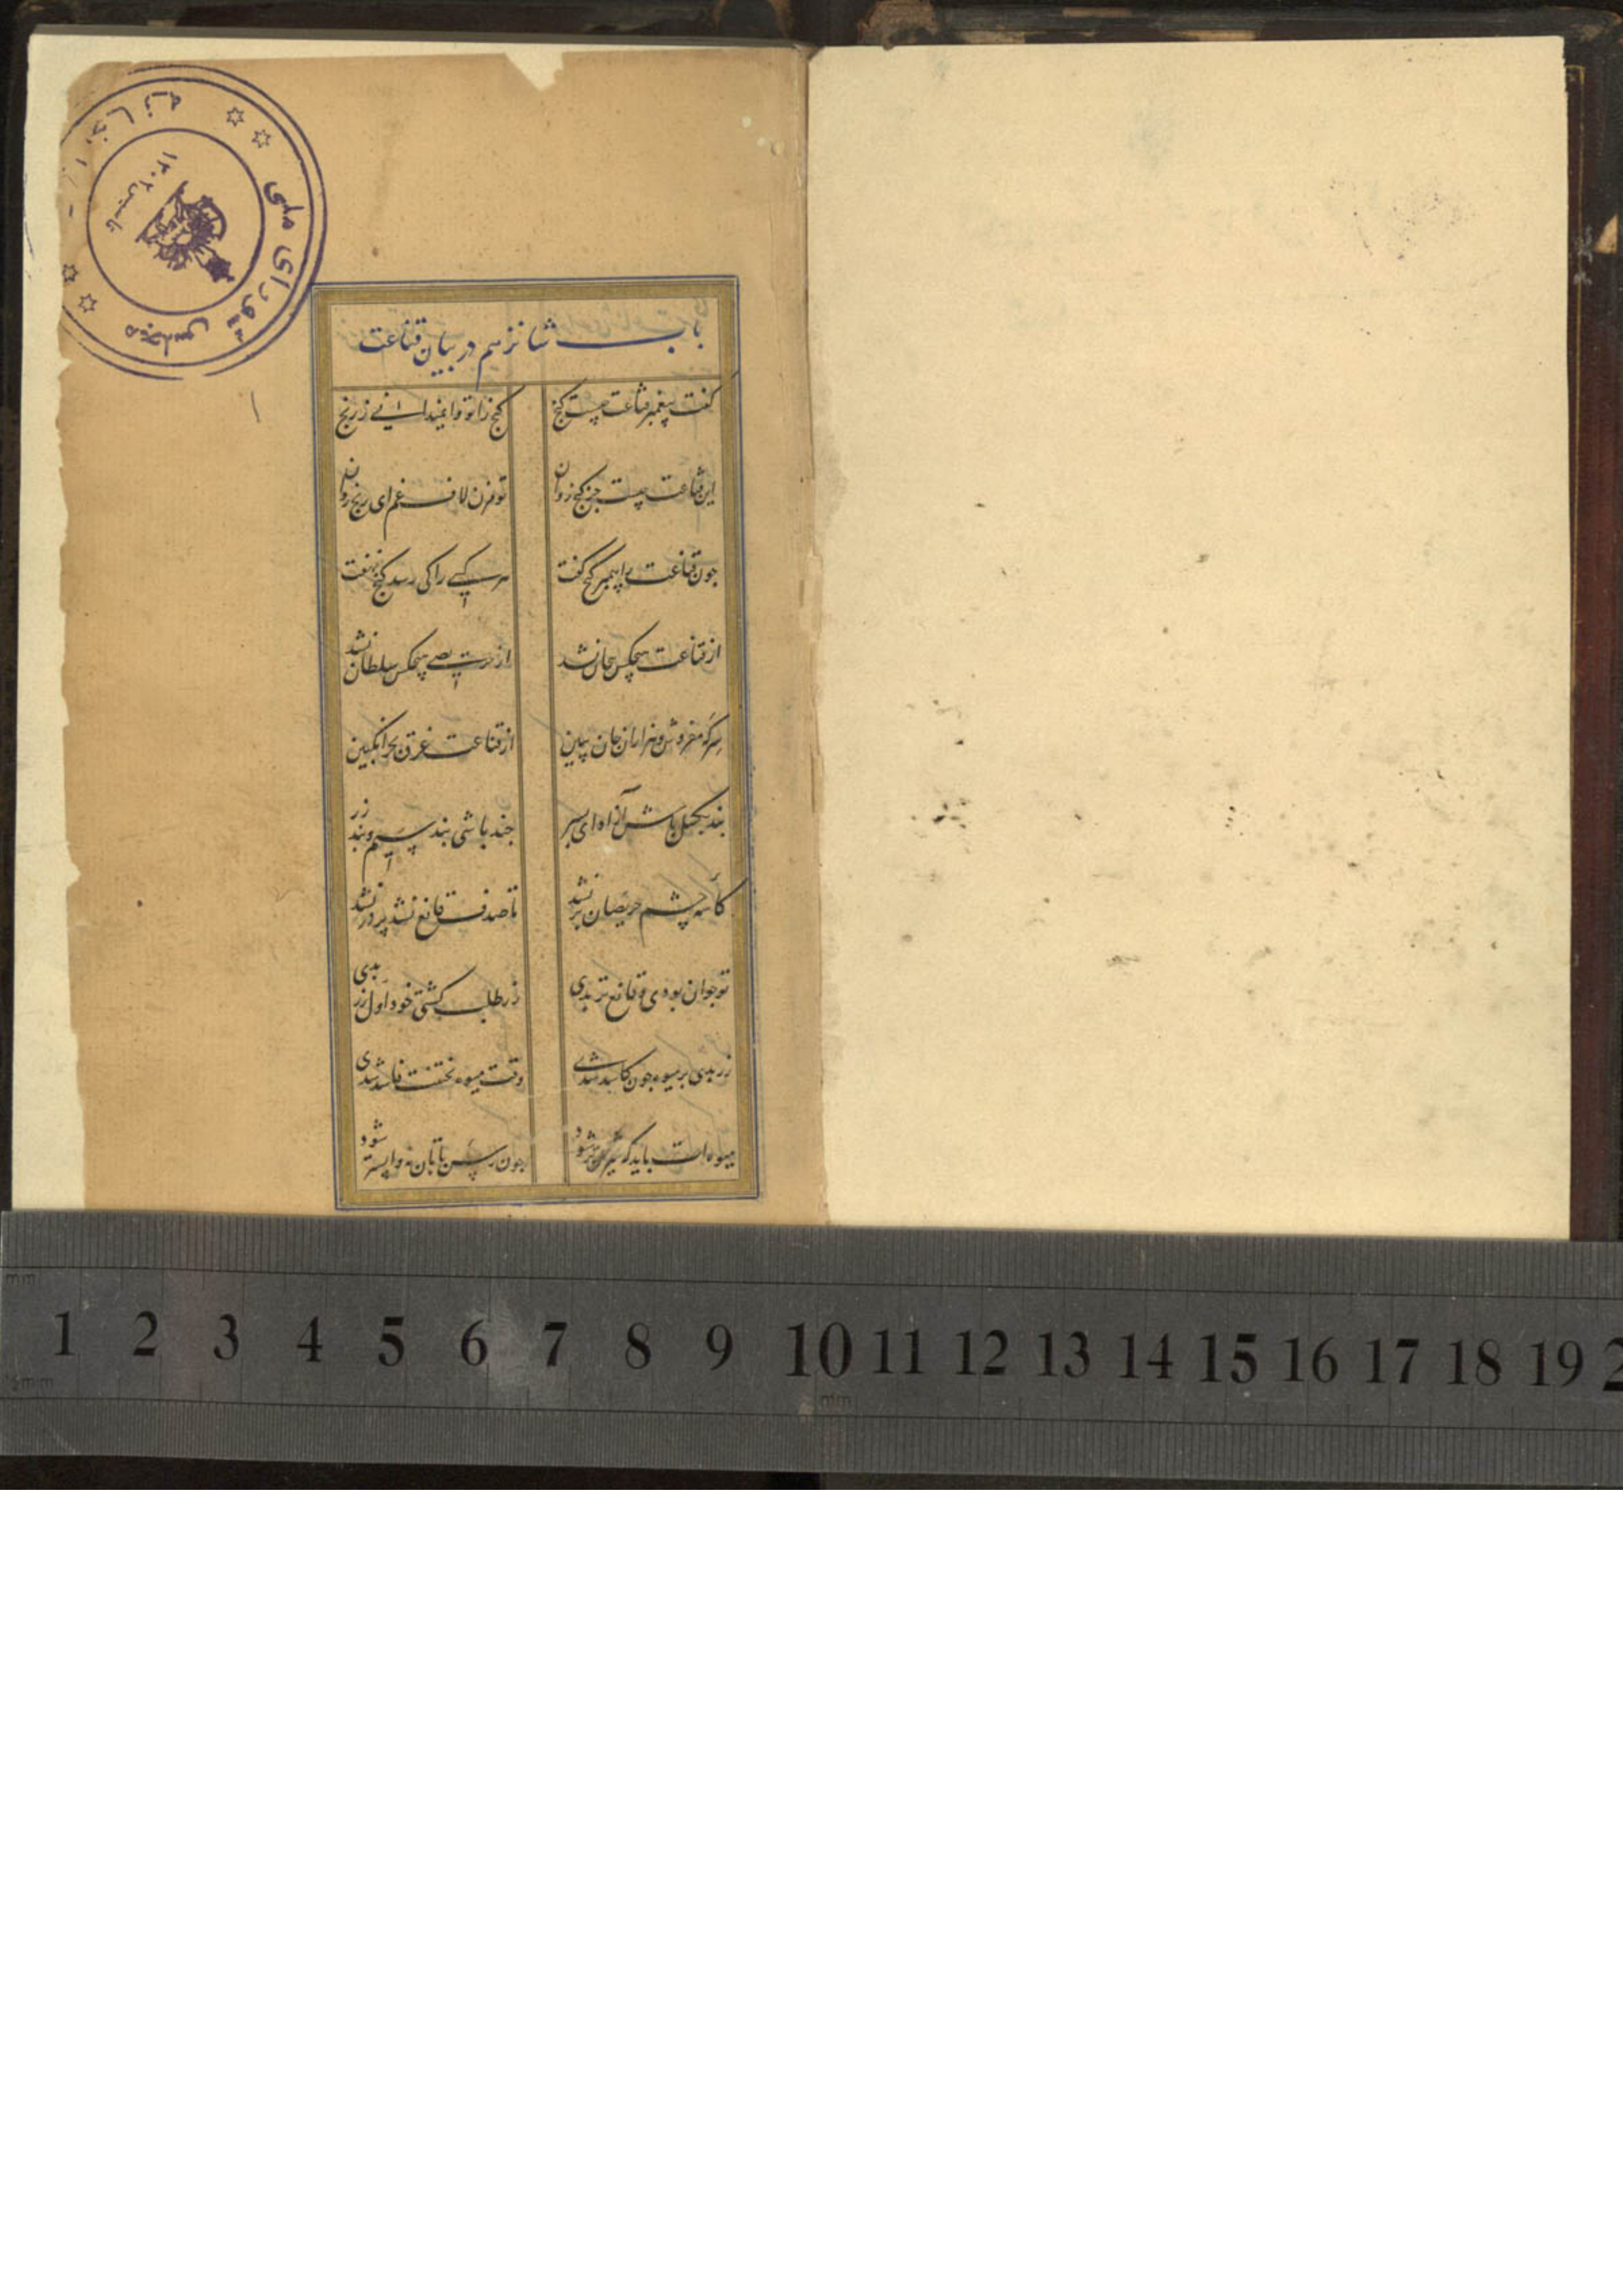 باب شانزدهم در بیان قناعت
گفت پیغمبر قناعت چیست گنج
گنج را تو وا نمیدانی ز رنج
این قناعت نیست جز گنج روان
تو مزن لاف غم ای رنج روان
چون قناعت را پیمبر گنج گفت
هر کسی را کی رسد گنج نهفت
از قناعت هیچکس بیجان نشد
از حریصی هیچکس سلطان نشد
سرکه مفروش و هزاران جان ببین
از قناعت غرق بحر انگبین
بند بگسل باش آزاد ای پسر
چند باشی بند سیم و بند زر
کاسه چشم حریصان پر نشد
تا صدف قانع نشد پر در نشد
تو جوان بودی و قانع تر بدی
زر طلب گشتی خود اول زر بدی
زر بدی پر میوه چون کاسد شدی
وقت میوه پختنت فاسد شدی
میوه ات باید که شیرین تر شود
چون رسن تابان نه واپستر شود
کتابخانه
مجلس شورای ملی
تاسیس ۱۳۰۲
۱
mm
1 2 3 4 5 6 7 8 9 10 11 12 13 14 15 16 17 18 19 2
½mm
mm